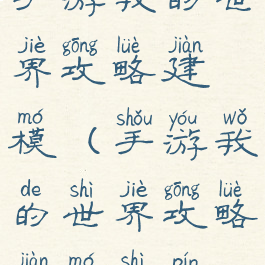 游我的世
jiè gōng lüè jiàn
界攻略建
mó shǒu yóu wǒ
模（手游我
de shì jiè gōng lüè
的世界攻略
jiàn mó shì pín